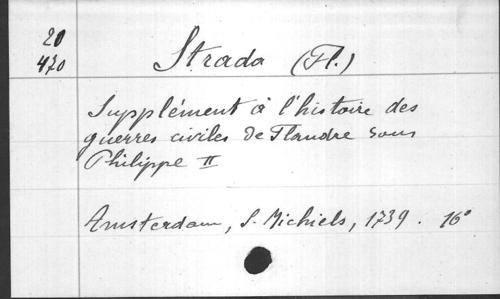 20
470
Strada (Fl.)
Supplément à l'histoire des
guerres civiles de Flandre sous
Philippe II
Amsterdam, S. Michiels, 1739. 16°